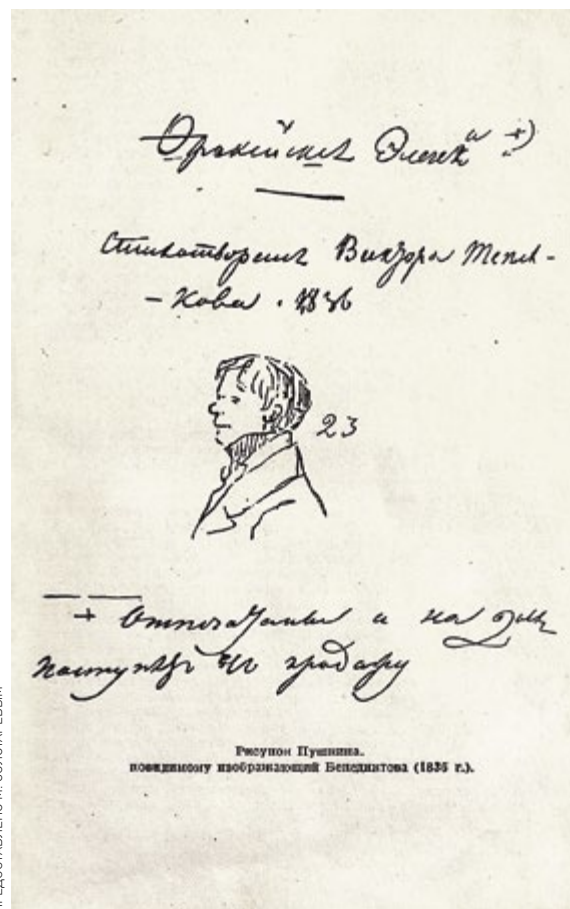 Фракийския Элегии +)
Стихотворения Виктора Тепля-
- кова . 1836
23
+ Отпечатаны и на днях
поступятъ въ продажу
Рисунок Пушкина.
повидимому изображающий Бенедиктова (1836 г.).